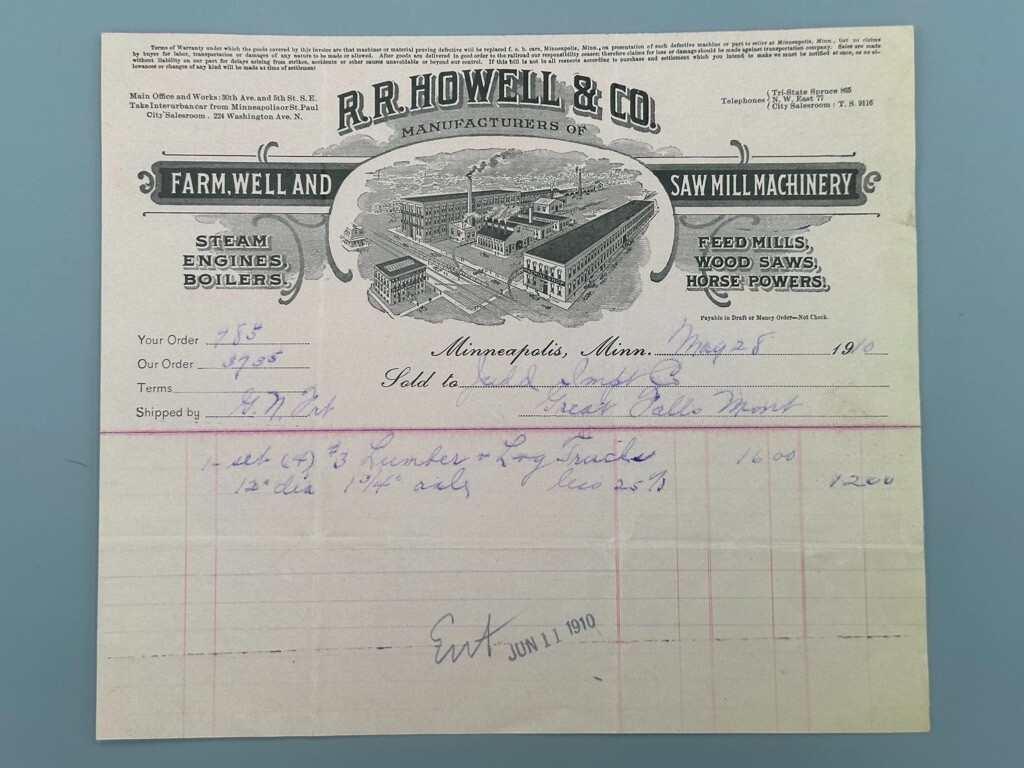 Terms of Warranty under which the goods covered by this invoice are that machines or material proving defective will be replaced f. o. b. cars, Minneapolis, Minn., on presentation of such defective machine or part to seller at Minneapolis, Minn., but no claims
by buyer for labor, transportation or damages of any nature to be made or allowed. After goods are delivered in good order to the railroad our responsibility ceases; therefore claims for loss or damage should be made against transportation company. Sales are made
without liability on our part for delays arising from strikes, accidents or other causes unavoidable or beyond our control. If this bill is not in all respects according to purchase and settlement which you intend to make we must be notified at once, as no al-
lowances or changes of any kind will be made at time of settlement
R.R. HOWELL & CO.
Main Office and Works: 30th Ave. and 5th St. S. E.
Take Interurban car from Minneapolis or St. Paul
City Salesroom. 224 Washington Ave. N.
Telephones { Tri-State Spruce 865
N. W. East 77
City Salesroom: T. S. 9116
MANUFACTURERS OF
FARM, WELL AND
SAW MILL MACHINERY
STEAM
ENGINES,
BOILERS.
FEED MILLS,
WOOD SAWS,
HORSE POWERS.
Payable in Draft or Money Order—Not Check.
Your Order 785
Minneapolis, Minn. May 28 1910
Our Order 3735
Sold to Judd Impt Co
Terms
Shipped by G. N. Frt
Great Falls Mont
1 - set (4) #3 Lumber & Log Trucks 16 00
12" dia 1 3/4" axles less 25% 12 00
Ent JUN 11 1910